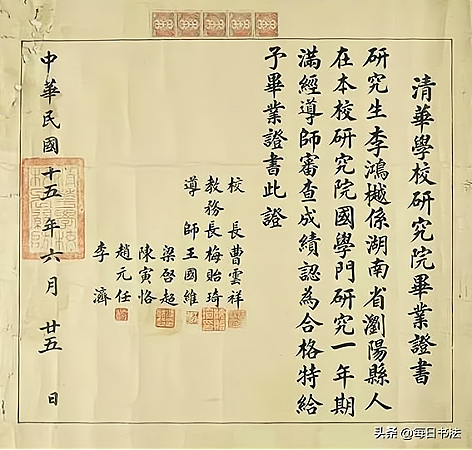 清華學校研究院畢業證書
研究生李鴻樾係湖南省瀏陽縣人
在本校研究院國學門研究一年期
滿經導師審查成績認為合格特給
予畢業證書此證
校長曹雲祥
教務長梅貽琦
導師王國維
梁啓超
陳寅恪
趙元任
李濟
中華民國十五年六月廿五日
头条 @每日书法